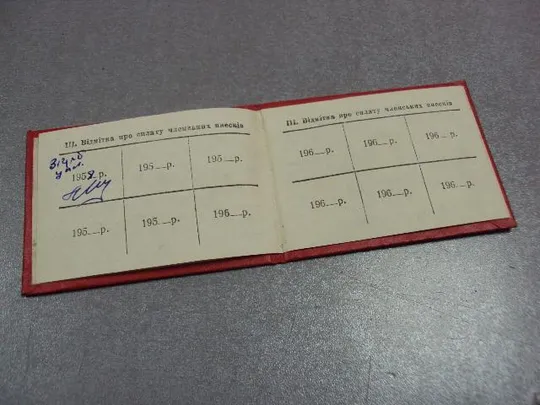 III. Відмітка про сплату членських внесків
1958 р.
195__р.
195__р.
195__р.
195__р.
196__р.
III. Відмітка про сплату членських внесків
196__р.
196__р.
196__р.
196__р.
196__р.
196__р.